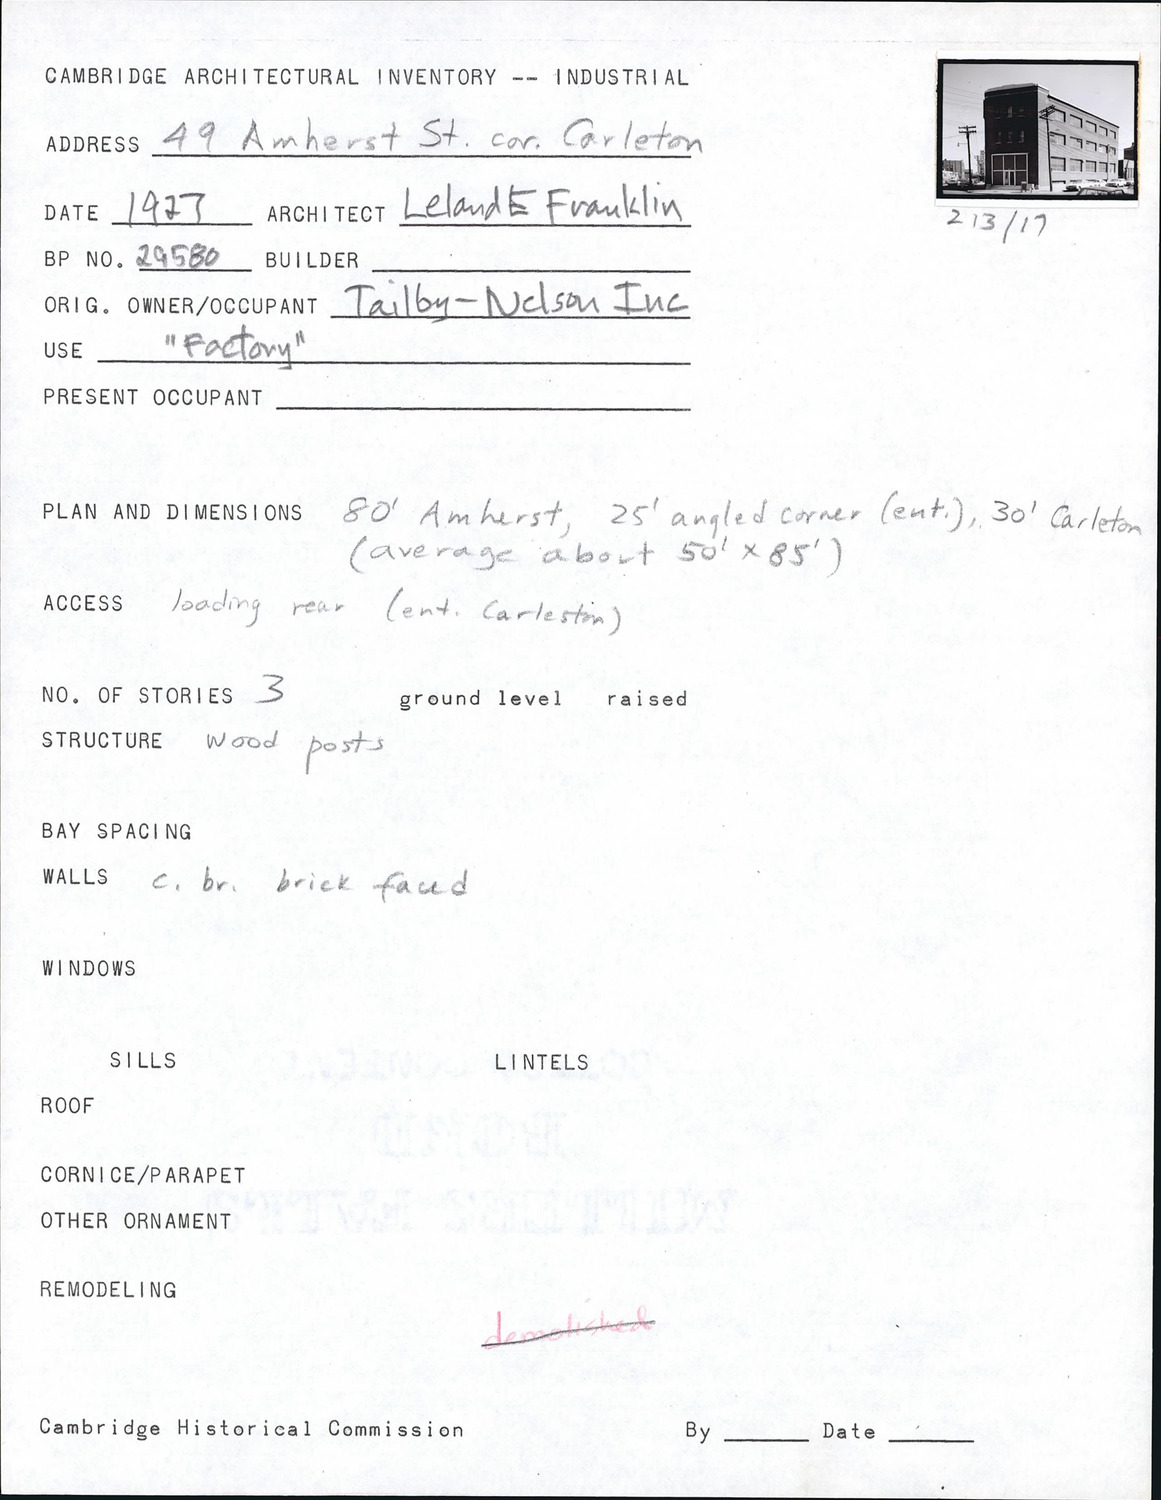 CAMBRIDGE ARCHITECTURAL INVENTORY -- INDUSTRIAL
ADDRESS 49 Amherst St. cor. Carleton
213/17
DATE 1927 ARCHITECT Leland E Franklin
BP NO. 29580 BUILDER
ORIG. OWNER/OCCUPANT Tailby-Nelson Inc
USE "Factory"
PRESENT OCCUPANT
PLAN AND DIMENSIONS 80' Amherst, 25' angled corner (ent.), 30' Carleton
(average about 50' x 85')
ACCESS loading rear (ent. Carleston)
NO. OF STORIES 3 ground level raised
STRUCTURE wood posts
BAY SPACING
WALLS c. br. brick faced
WINDOWS
SILLS LINTELS
ROOF
CORNICE/PARAPET
OTHER ORNAMENT
REMODELING
demolished
Cambridge Historical Commission By Date